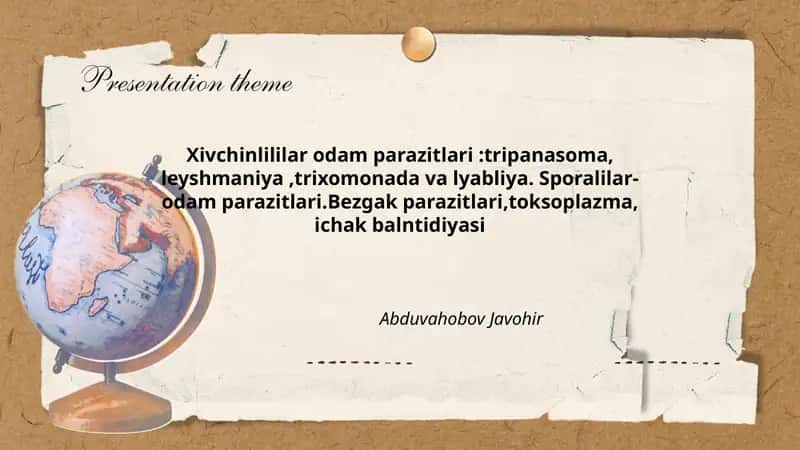 Presentation theme
Xivchinlililar odam parazitlari :tripanasoma,
leyshmaniya ,trixomonada va lyabliya. Sporalilar-
odam parazitlari.Bezgak parazitlari,toksoplazma,
ichak balntidiyasi
Abduvahobov Javohir